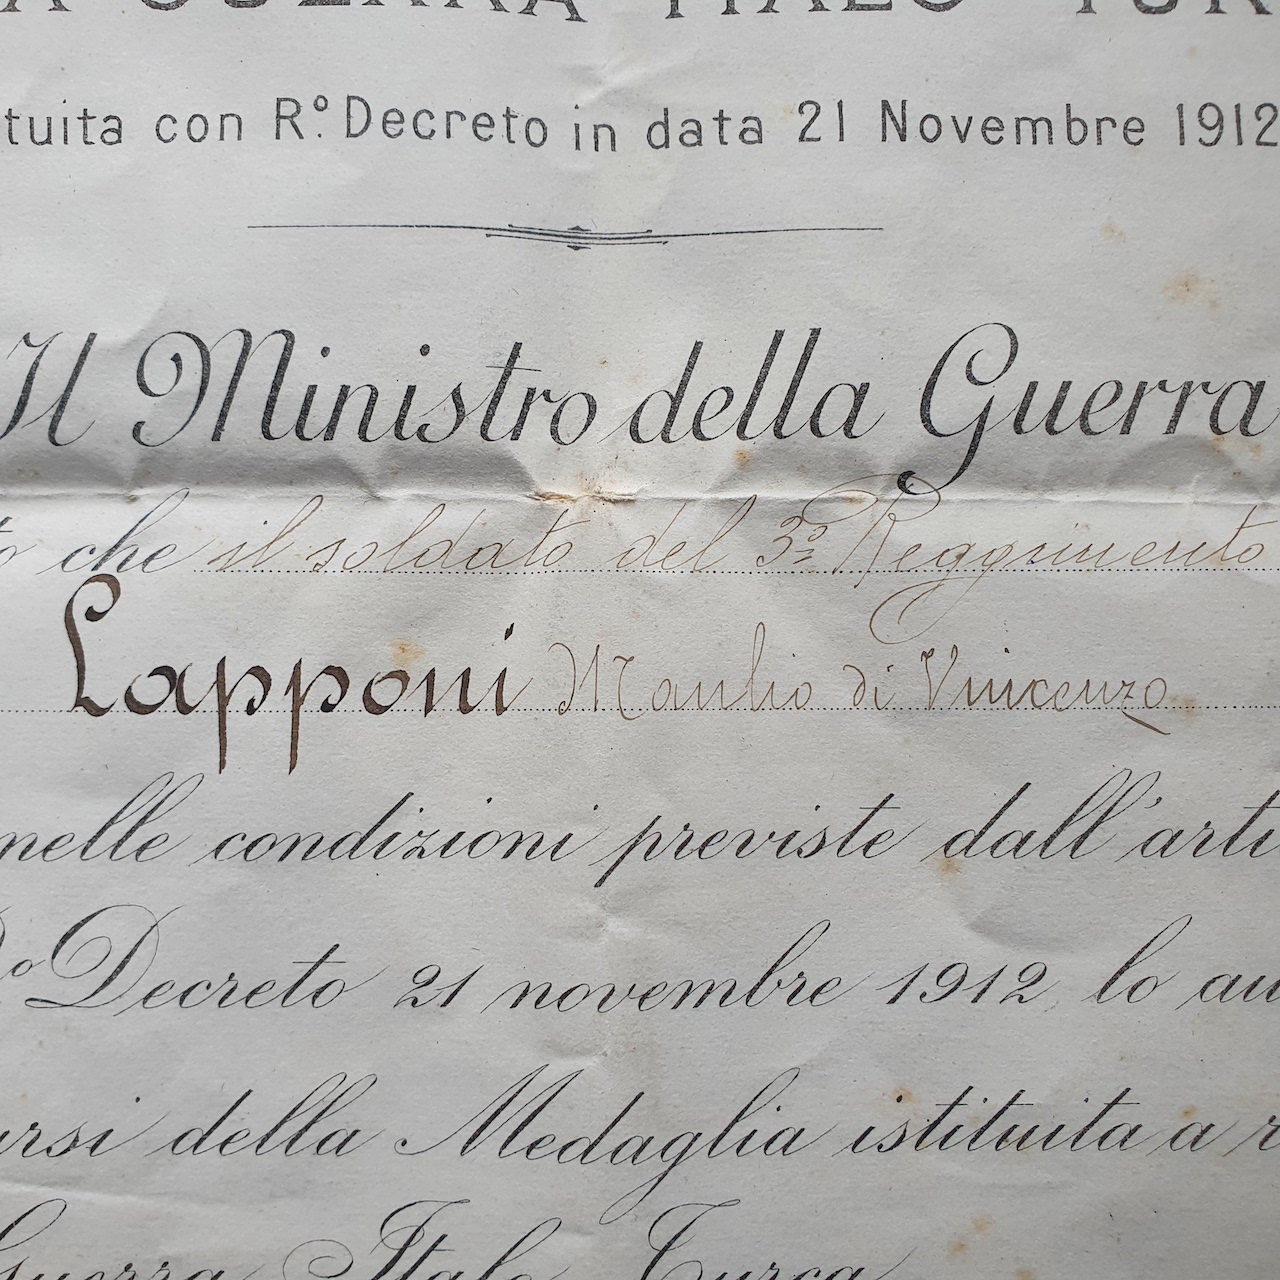 A GUERRA ITALO-TUR
tuita con R.º Decreto in data 21 Novembre 1912
Il Ministro della Guerra
to che il soldato del 3º Reggimento
Lapponi Manlio di Vincenzo
nelle condizioni previste dall'arti
R.º Decreto 21 novembre 1912 lo au
arsi della Medaglia istituita a r
Guerra Italo Turca